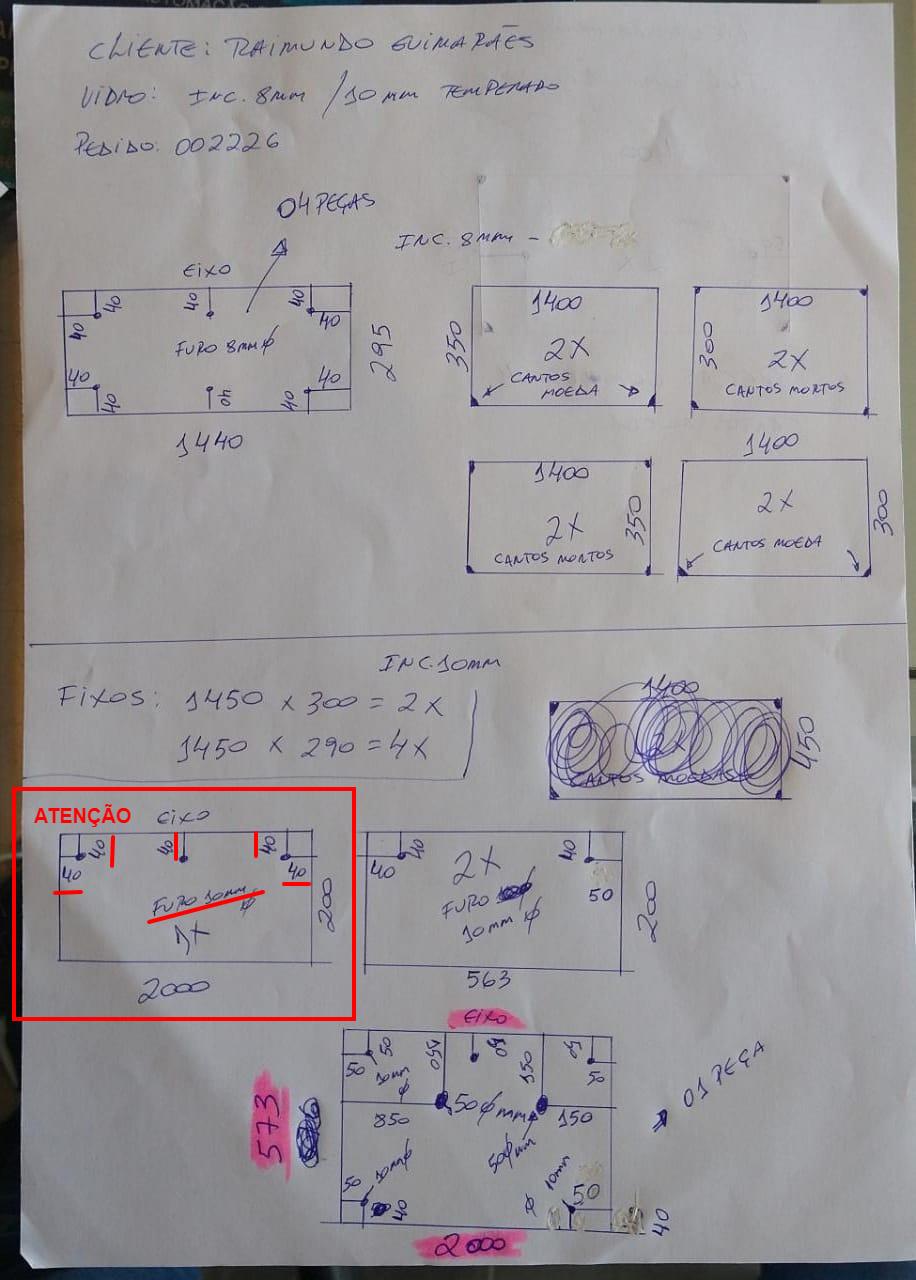 CLIENTE: RAIMUNDO GUIMARÃES
VIDRO: INC. 8mm / 10mm TEMPERADO
PEDIDO: 002226
04 PEÇAS
INC. 8mm -
EIXO
40
40
40
40
40
FURO 8mm φ
40
40
40
40
40
295
1440
1400
350
2X
CANTOS MOEDA
1400
300
2X
CANTOS MORTOS
1400
350
2X
CANTOS MORTOS
1400
300
2X
CANTOS MOEDA
INC. 10mm
FIXOS: 1450 X 300 = 2X
1450 X 290 = 4X
1400
450
CANTOS MOEDAS
ATENÇÃO
EIXO
40
40
40
40
40
FURO 10mm φ
1X
200
2000
40
40
2X
40
50
FURO
10mm φ
200
563
EIXO
50
50
10mm φ
150
50
150
50
50
850
50φmm
50φmm
150
573
50
10mm φ
40
φ 10mm
50
40
2000
01 PEÇA